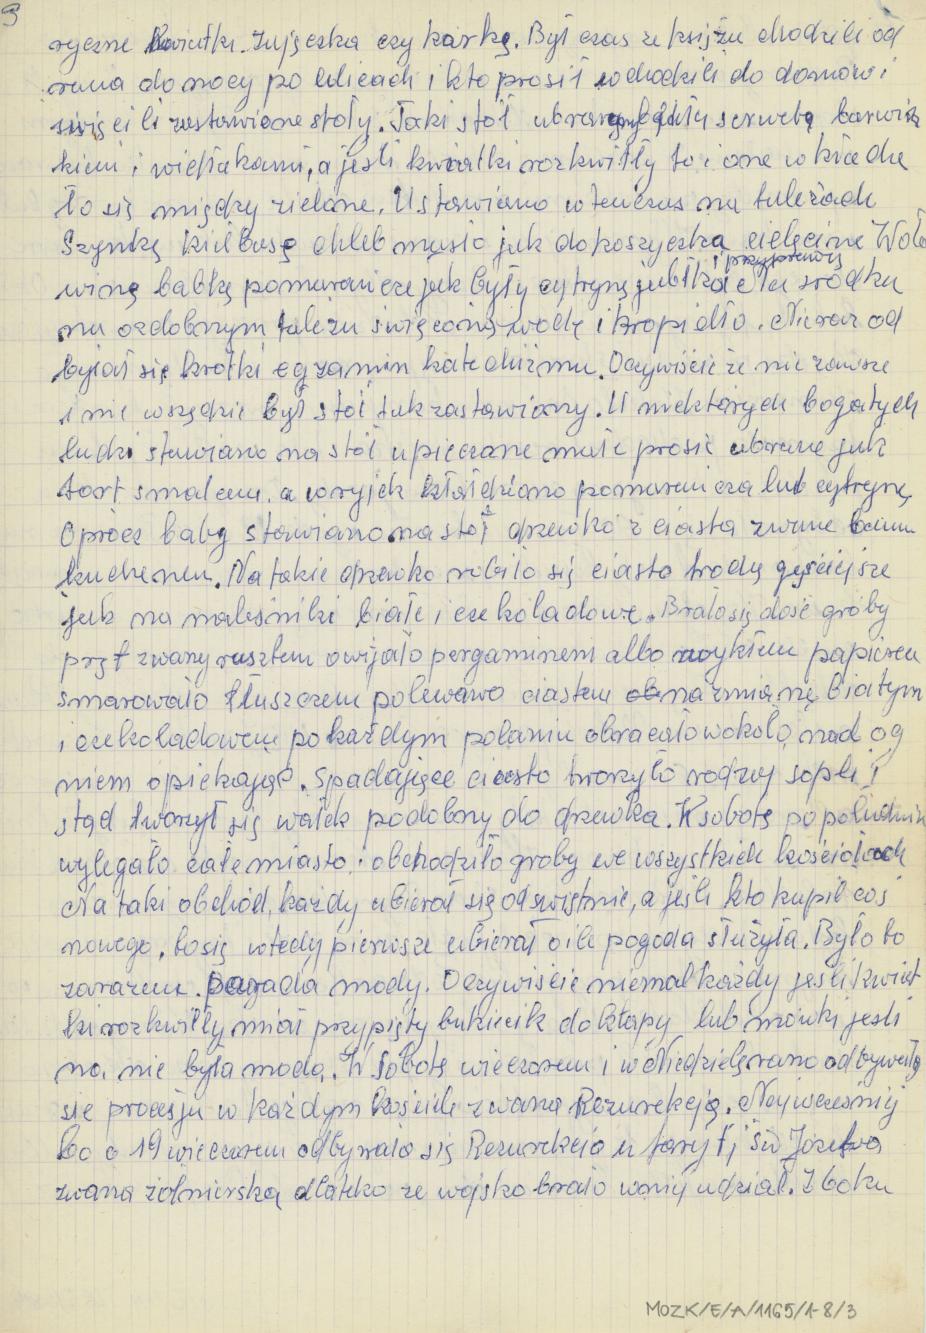 3
ryczne kwiatki. Zajączka czy kartkę. Był czas że księżu chodzili od
rana do nocy po ulicach i kto prosił wchodzili do domów i
święcili zastawione stoły. Taki stół ubrany był serwetą barwin
kiem i widłakami, a jeśli kwiatki rozkwitły to i one wkłada
ło się między zielone. Ustawiano wtenczas na talerzach
Szynkę kiełbasę chleb masło jak do koszyczka cielęcinę Woło
winę babkę pomarańcze jak były cytrynę jabłka i przyprawy Na środku
na ozdobnym talerzu święconą wodę i kropidło. Nieraz od
bywał się krótki egzamin katechizmu. Oczywiście że nie zawsze
i nie wszędzie był stół tak zastawiony. U niektórych bogatych
ludzi stawiano na stół upieczone małe prosię ubrane jak
tort smalcem. a w ryjek kładziono pomarańcza lub cytrynę,
Oprócz baby stawiano na stół drzewko z ciasta zwane baum
kuchenem. Na takie drzewko robiło się ciasto trochę gęściejsze
jak na naleśniki białe i czekoladowe. Brało się dość gruby
pręt zwany rusztem owijało pergaminem albo zwykłem papierem
smarowało tłuszczem polewano ciastem na zmianę białym
i czekoladowem po każdym polaniu obracało wokoło nad og
niem opiekając. Spadające ciasto tworzyło rodzaj sopli i
stąd tworzył się wałek podobny do drzewka. W sobotę po południu
wylegało całe miasto i obchodziło groby we wszystkich kościołach
Na taki obchód, każdy ubierał się odświętnie, a jeśli kto kupił coś
nowego, to się wtedy pierwsze ubierał o ile pogoda służyła. Było to
zarazem. parada mody. Oczywiście niemal każdy jeśli kwiat
ki rozkwitły miał przypięty bukiecik do kłapy lub mówki jeśli
na. nie była moda. W Sobotę wieczorem i w Niedzielę rano odbywała
się procesja w każdym kościele zwana Rezurekcją. Najwcześniej
bo o 19 wieczorem odbywała się Rezurekcja u fary tj św Józefa
zwana żołnierską dlatego że wojsko brało w niej udział. Z boku
MOZK/E/A/1165/1-8/3